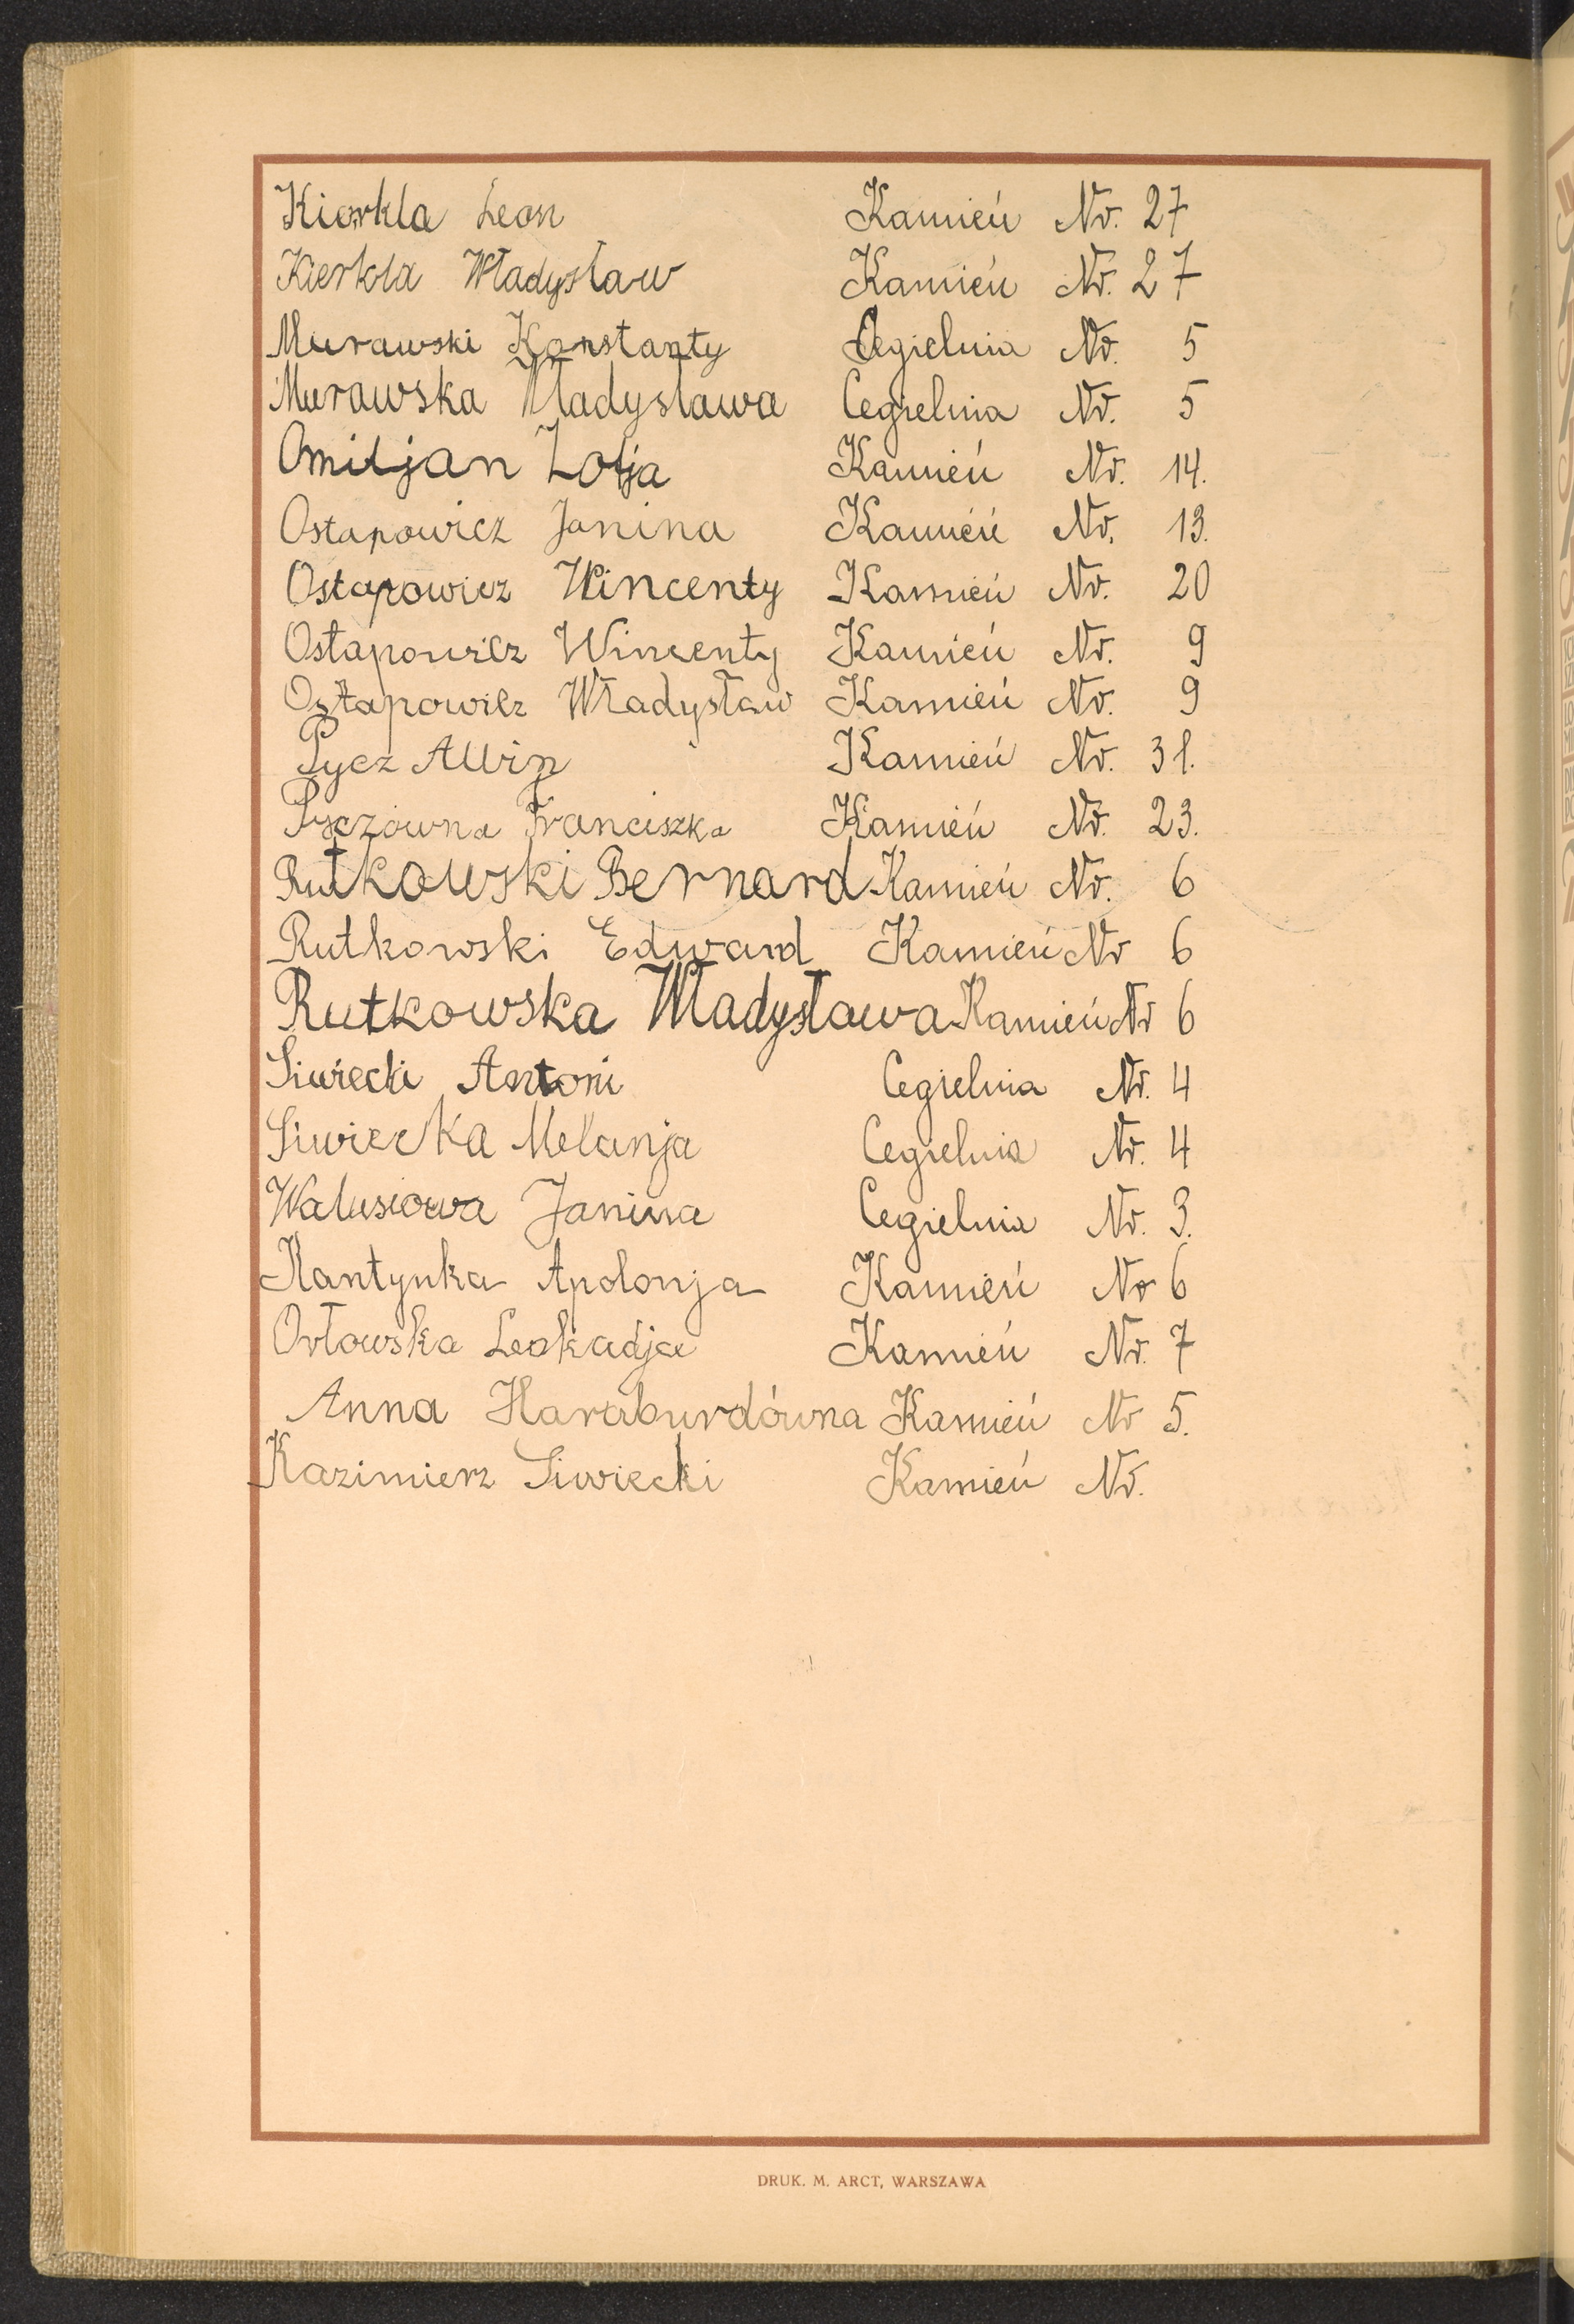 Kiorkla Leon Kamień Nr. 27
Kierkla Władysław Kamień Nr. 27
Murawski Konstanty Cegielnia Nr. 5
Murawska Władysława Cegielnia Nr. 5
Omiljan Zofja Kamień Nr. 14.
Ostapowicz Janina Kamień Nr. 13.
Ostapowicz Wincenty Kamień Nr. 20
Ostapowicz Wincenty Kamień Nr. 9
Ostapowicz Władysław Kamień Nr. 9
Pycz Kamień Nr. 31.
Pyczówna Franciszka Kamień Nr. 23.
Rutkowski Bernard Kamień Nr. 6
Rutkowski Edward Kamień Nr 6
Rutkowska Władysława Kamień Nr 6
Siwiecki Antoni Cegielnia Nr. 4
Siwiecka Melanja Cegielnia Nr. 4
Walusiowa Janina Cegielnia Nr. 3.
Kantynka Apolonja Kamień Nr 6
Orłowska Leokadja Kamień Nr. 7
Anna Haraburdówna Kamień Nr 5.
Kazimierz Siwiecki Kamień Nr.
DRUK. M. ARCT, WARSZAWA